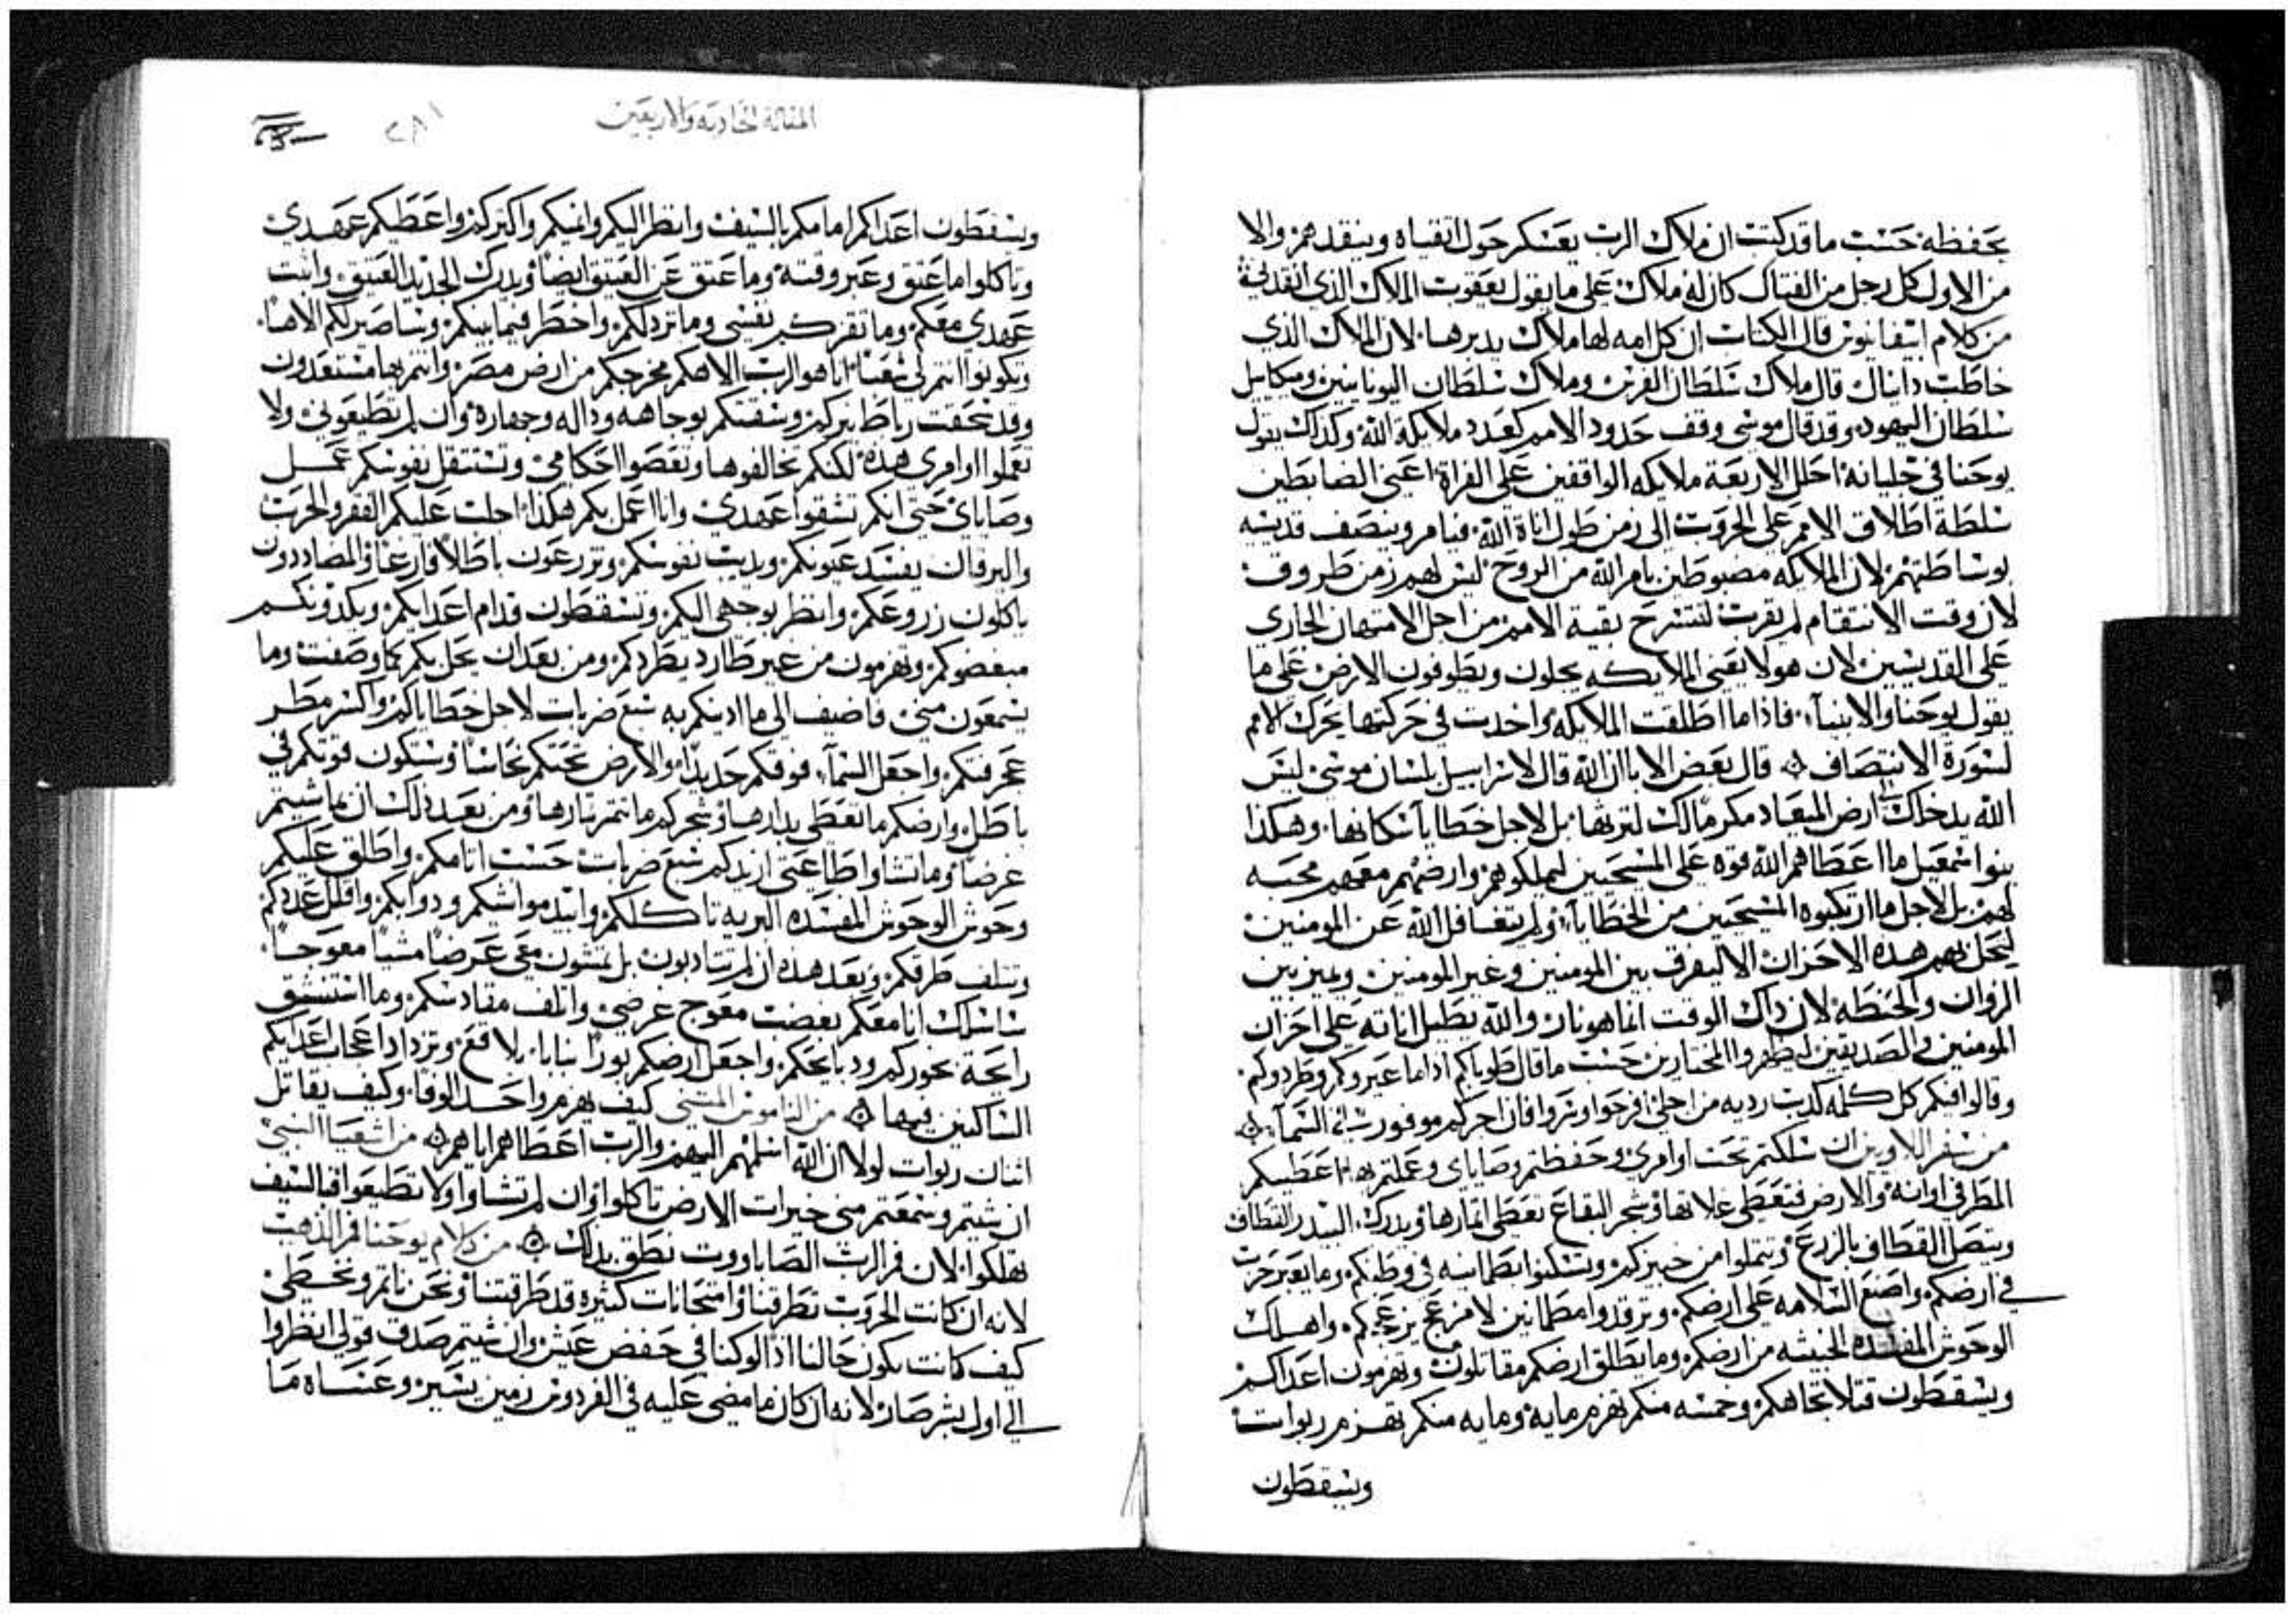 يحفظه حسب ما قد كتب ان ملاك الرب يعسكر حول اتقياه وينقدهم والا
من الاول كل رجل من القتال كان له ملاك على ما يقول يعقوب الملاك الذي انقدني
من كلام ابيفانيوس قال الكتاب ان كل امه لها ملاك يدبرها لان الملاك الذي
خاطب دانيال قال ملاك سلطان الفرس وملاك سلطان اليونانيين وميكاييل
سلطان اليهود وقد قال موسى وقف حدود الامم كعدد ملايكة الله وكذلك يقول
يوحنا في جليانه احلل الاربعة ملايكه الواقفين على الفراة اعني الضابطين
سلطة اطلاق الامم على الحروب الى زمن طول اناة الله فيامر وينصف قديسيه
بوساطتهم لان الملايكه مضبوطين بامر الله من الروح ليس لهم زمن ظروف
لان وقت الانتقام لم يقرب لتنسرح بقية الامم من اجل الامتهان الجاري
على القديسين لان هولا يعني الملايكه يحلون ويطوفون الارض على ما
يقول يوحنا والانبياء فاذا ما اطلقت الملايكه واخدت في حركتها يحرك الامم
لسورة الانتصاف قال بعض الابا ان الله قال لاسراييل بلسان موسى ليس
الله يدخلك الى ارض الميعاد مكرما لك لترثها بل لاجل خطايا سكانها وهكذا
بنوا اسمعيل ما اعطاهم الله قوه على المسيحيين ليملكوهم وارضهم معهم محبه
لهم بل لاجل ما ارتكبوه المسيحيين من الخطايا ولم يتغافل الله عن المومنين
ليحل بهم هذه الاحزان الا ليفرق بين المومنين وغير المومنين ويميز بين
الزوان والحنطه لان ذاك الوقت انما هو نار والله يطيل اناته على احزان
المومنين والصديقين ليظهروا المختارين حسب ما قال طوباكم اداما عيروكم وطردوكم
وقالوا فيكم كل كلمه كدب رديه من اجلي افرحوا وسروا فان اجركم موفور في السماء
من سفر اللاويين ان سلكتم تحت اوامري وحفظتم وصاياي وعملتم بها اعطيكم
المطر في اوانه والارض فتعطي غلاتها وشجر البقاع تعطي اثمارها ويدرك البيدر القطاف
ويتصل القطاف بالزرع وتتملوا من خبزكم وتسكنوا بطمانيه في وطنكم وما يعبر حرب
في ارضكم واصنع السلامه على ارضكم وترقدوا مطمانين لا مزعج يزعجكم واهلك
الوحوش المفسده الخبيثه من ارضكم وما يطلق ارضكم مقاتلون وتهزمون اعداكم
ويسقطون قتلا تجاهكم وخمسه منكم تهزم مايه ومايه منكم تهزم ربوات
ويسقطون
المقالة الحادية والاربعين
٢٨١
ويسقطون اعداكم امامكم بالسيف وانظر اليكم وانميكم واكثركم واعطيكم عهدي
وتاكلوا ما عتق وغبر وقته وما عتق عن العتيق ايضا ويدرك الجديد العتيق واثبت
عهدي معكم وما تقزكم نفسي وما تردلكم واخطر فيما بينكم وساصير لكم الاها
وتكونوا انتم لي شعبا انا هو الرب الاهكم مخرجكم من ارض مصر وانتم بها مستعبدون
وقد سحقت رباط نيركم وسقتكم بوجاهه وداله وجهاره وان لم تطيعوني ولا
تعملوا اوامري هذه لكنكم تخالفوها وتعصوا احكامي وتستثقل نفوسكم عمل
وصاياي حتى انكم تشقوا عهدي وانا اعمل بكم هكذا احلت عليكم الفقر والجرب
واليرقان يفسد عيونكم ويذيب نفوسكم وتزرعون باطلا فارغا والمضاددون
ياكلون زروعكم وانظر بوجهي اليكم وتسقطون قدام اعدايكم ويكدونكم
مبغضوكم وتهزمون من غير طارد يطردكم ومن بعد ان يحل بكم كما وصفت وما
يسمعون مني فاضيف الى ما ادبتكم به سبع ضربات لاجل خطاياكم واكسر
عجرفتكم واجعل السماء فوقكم حديدا والارض تحتكم نحاسا وستكون قوتكم في
باطل وارضكم ما تعطي بدارها وشجركم ما تتمر ثمارها ومن بعد ذلك ان ما شيتم
عرضا وما تشاوا طاعتي ازيدكم سبع ضربات حسب اثامكم واطلق عليكم
وحوش الوحوش المفسده البريه تاكلكم وابيد مواشيكم ودوابكم واقلل عددكم
وتتلف طرقكم وبعد هذه ان لم تتادبون بل تمشون معي عرضا مشيا معوجا
ساسلك انا معكم بغضب معوج عرضي واتلف مقادسكم وما استنشق
رايحة بخوركم ودبايحكم واجعل ارضكم بورا يبابا بلا قعر وتزداد اعجاب اعدايكم
الساكنين فيها من الناموس المثنى كيف يهزم واحد الوفا وكيف يقاتل
اثنان ربوات لولا ان الله اسلمهم اليهم والرب اعطاهم اياهم من اشعيا النبي
ان شيتم وسمعتم مني خيرات الارض تاكلوا وان لم تشاوا ولا تطيعوا فالسيف
تهلكوا لان فم الرب الصاباووت نطق بدلك من كلام يوحنا فم الذهب
لانه ان كانت الحروب تطرقنا وامتحانات كثيره قد طرقتنا ونحن ناتم ونخطي
كيف كانت تكون حالنا اذا لو كنا في خفض عيش وان شيتم صدق قولي انظروا
الى اول بشر صار لانه ان كان ما مضى عليه في الفردوس زمن يسير وعساه ما